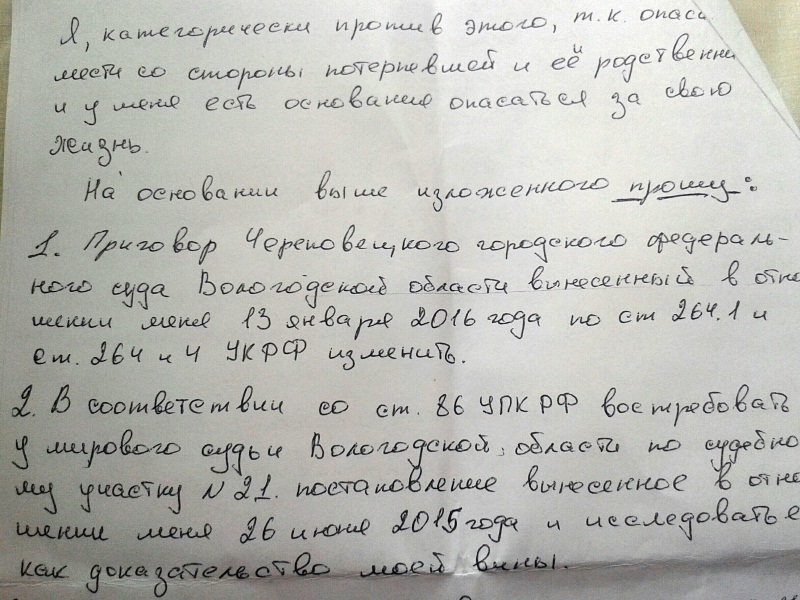 Я, категорически против этого, т.к. опаса
мести со стороны потерпевшей и её родственни
и у меня есть основания опасаться за свою
жизнь.
На основании выше изложенного прошу:
1. Приговор Череповецкого городского федераль-
ного суда Вологодской области вынесенный в отно
шении меня 13 января 2016 года по ст 264.1 и
ст. 264 ч 4 УК РФ изменить.
2. В соответствии со ст. 86 УПК РФ востребовать
у мирового судьи Вологодской области по судебно
му участку №21. постановление вынесенное в отно
шении меня 26 июня 2015 года и исследовать е
как доказательство моей вины.